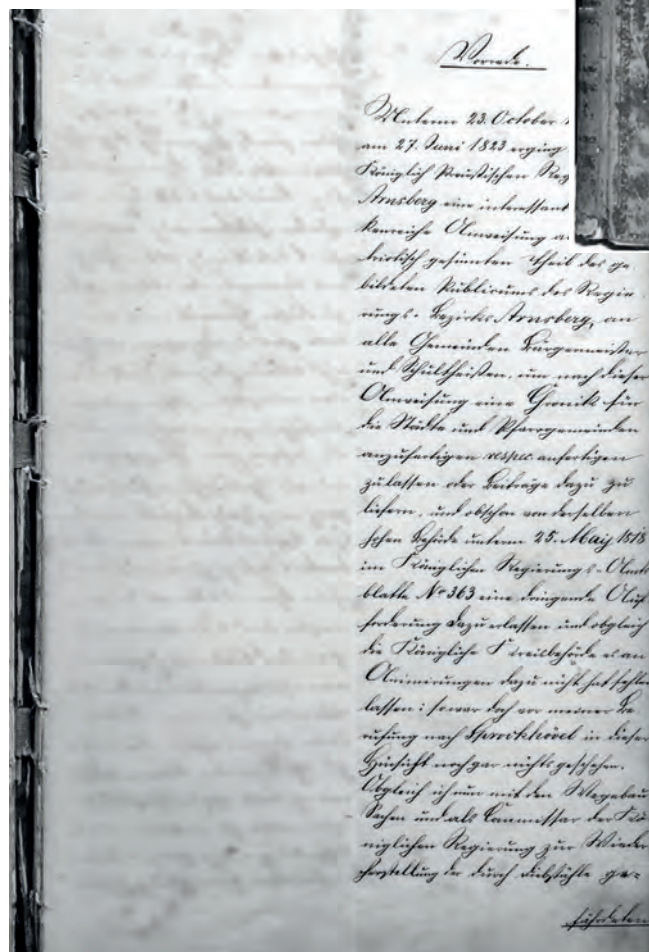 Vorrede.
Unterm 23. October
am 27. Juni 1823 erging
Königlich Preußischen Reg
Arnsberg eine interessant
kenreiche Anweisung a
triotisch gesinnten Theil des ge
bildeten Publicums des Regie
rungs-Bezirks Arnsberg, an
alle Gemeinden Bürgermeister
und Schultheißen, um nach dieser
Anweisung eine Chronik für
die Städte und Pfarrgemeinden
anzufertigen respec. anfertigen
zu lassen oder Beiträge dazu zu
liefern, und obschon von derselben
hohen Behörde unterm 25. Maij 1818
im Königlichen Regierungs-Amts
blatte No 363 eine dringende Auf
forderung dazu erlassen und obgleich
die Königliche Kreisbehörde es an
Animirungen dazu nicht hat fehlen
lassen: so war doch vor meiner Be
rufung nach Sprockhövel in dieser
Hinsicht noch gar nichts geschehen.
Obgleich ich nun mit den Wegebau
Sachen und als Commissar der Kö
niglichen Regierung zur Wieder
herstellung der durch Diebstähle ge=
fährdeten